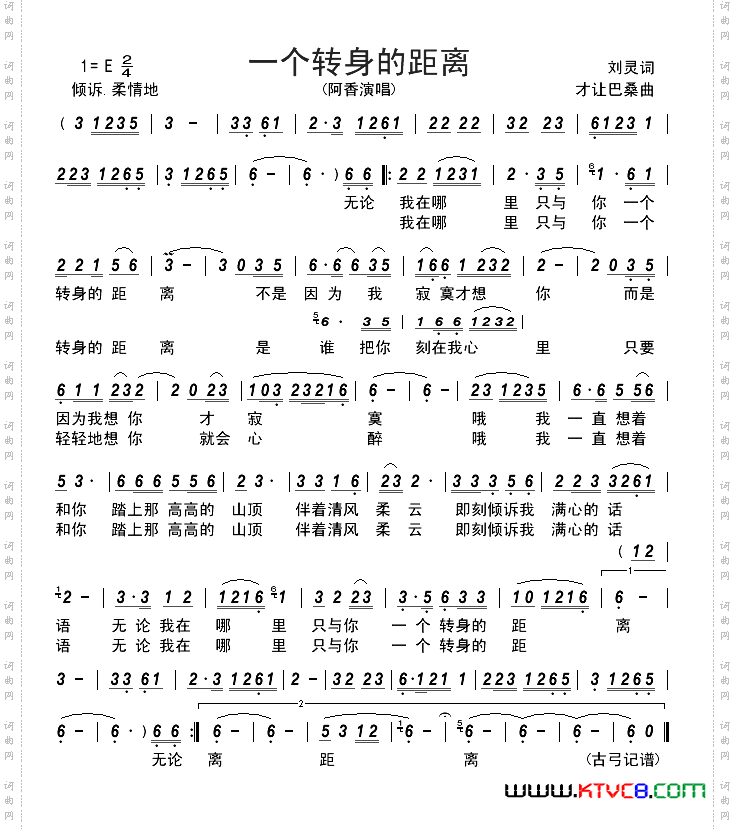 一个转身的距离
1= E 2/4
刘灵词
倾诉.柔情地
(阿香演唱)
才让巴桑曲
( 3 1235 | 3 - | 33 61 | 2·3 1261 | 22 22 | 32 23 | 61231 |
223 1265 | 3 1265 | 6 - | 6· ) 66 |: 2 2 1231 | 2· 35 | 6 1· 61 |
无论 我在哪 里 只与 你 一个
我在哪 里 只与 你 一个
221 56 | 3 - | 3 035 | 6·6 635 | 166 1 232 | 2 - | 2 035 |
转身的 距 离 不是 因 为 我 寂 寞才想 你 而是
5 6· 35 | 166 1232 |
转身的 距 离 是 谁 把你 刻在我心 里 只要
611 232 | 2 023 | 103 23216 | 6 - | 6 - | 23 1235 | 6·6 556 |
因为我想 你 才 寂 寞 哦 我 一 直 想着
轻轻地想 你 就会 心 醉 哦 我 一 直 想着
5 3· | 666 556 | 2 3· | 331 6 | 23 2· | 33356 | 223 3261 |
和你 踏上那 高高的 山顶 伴着清风 柔 云 即刻倾诉我 满心的 话
和你 踏上那 高高的 山顶 伴着清风 柔 云 即刻倾诉我 满心的 话
( 12
1
1 2 - | 3·3 12 | 1216 6 1 | 3 2 23 | 3·5 633 | 10 1216 | 6 - |
语 无 论 我在 哪 里 只与你 一 个 转身的 距 离
语 无 论 我在 哪 里 只与你 一 个 转身的 距
3 - | 33 61 | 2·3 1261 | 2 - | 32 23 | 6·121 1 | 223 1265 | 3 1265 |
2
6 - | 6· ) 66 :| 6 - | 6 - | 5 312 | 1 6 - | 5 6 - | 6 0 ‖
无论 离 距 离 (古弓记谱)
www.KTVC8.com
词曲网